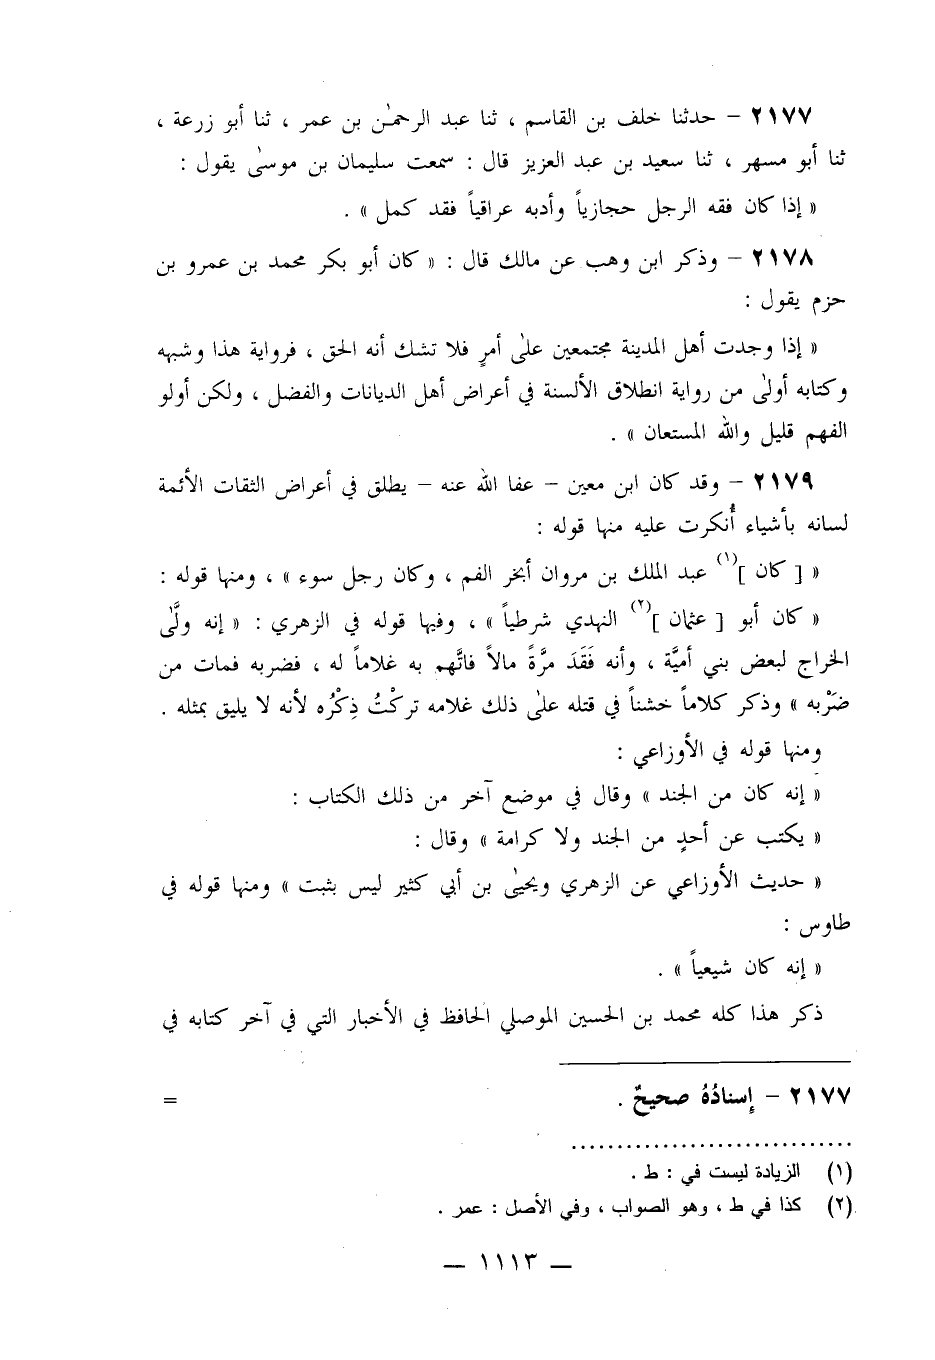 ٢١٧٧ – حدثنا خلف بن القاسم ، ثنا عبد الرحمٰن بن عمر ، ثنا أبو زرعة ،
ثنا أبو مسهر ، ثنا سعيد بن عبد العزيز قال : سمعت سليمان بن موسىٰ يقول :
« إذا كان فقه الرجل حجازياً وأدبه عراقياً فقد كمل » .
٢١٧٨ – وذكر ابن وهب عن مالك قال : « كان أبو بكر محمد بن عمرو بن
حزم يقول :
« إذا وجدت أهل المدينة مجتمعين علىٰ أمرٍ فلا تشك أنه الحق ، فرواية هذا وشبهه
وكتابه أولىٰ من رواية انطلاق الألسنة في أعراض أهل الديانات والفضل ، ولكن أولو
الفهم قليل والله المستعان » .
٢١٧٩ – وقد كان ابن معين – عفا الله عنه – يطلق في أعراض الثقات الأئمة
لسانه بأشياء أُنكرت عليه منها قوله :
« [ كان ](١) عبد الملك بن مروان أبخر الفم ، وكان رجل سوء » ، ومنها قوله :
« كان أبو [ عثمان ](٢) النهدي شرطياً » ، وفيها قوله في الزهري : « إنه ولَّىٰ
الخراج لبعض بني أميَّة ، وأنه فَقَدَ مرَّةً مالاً فاتَّهم به غلاماً له ، فضربه فمات من
ضَرْبه » وذكر كلاماً خشناً في قتله علىٰ ذلك غلامه تركْتُ ذِكْرُه لأنه لا يليق بمثله .
ومنها قوله في الأوزاعي :
« إنه كان من الجند » وقال في موضع آخر من ذلك الكتاب :
« يكتب عن أحدٍ من الجند ولا كرامة » وقال :
« حديث الأوزاعي عن الزهري ويحيىٰ بن أبي كثير ليس بثبت » ومنها قوله في
طاوس :
« إنه كان شيعياً » .
ذكر هذا كله محمد بن الحسين الموصلي الحافظ في الأخبار التي في آخر كتابه في
٢١٧٧ – إِسنادُهُ صحيحٌ . =
(١) الزيادة ليست في : ط .
(٢) كذا في ط ، وهو الصواب ، وفي الأصل : عمر .
— ١١١٣ —